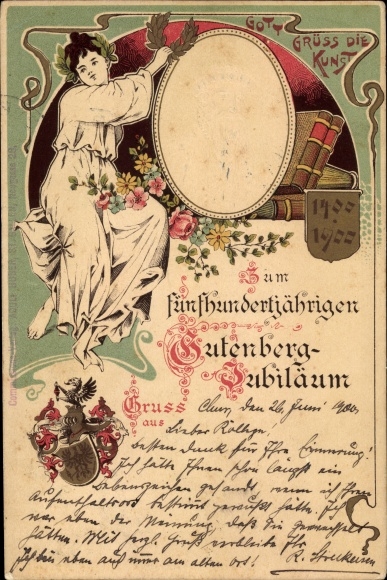 GOTT
GRÜSS DIE
KUNST
1400
1900
Zum
fünfhundertjährigen
Gutenberg-
Jubiläum
Gruss
aus
Chur, den 26. Juni 1900.
Lieber Kollege!
Besten Dank für Ihre Erinnerung!
Ich hätte Ihnen schon längst ein
Lebenszeichen gesandt, wenn ich Ihren
Aufenthaltsort bestimmt gewußt hätte. Ich
war eben der Meinung, daß Sie gewechselt
hätten. Mit frdl. Gruß verbleibe Ihr
R. Streckeisen
Ich bin eben auch immer am alten Ort!